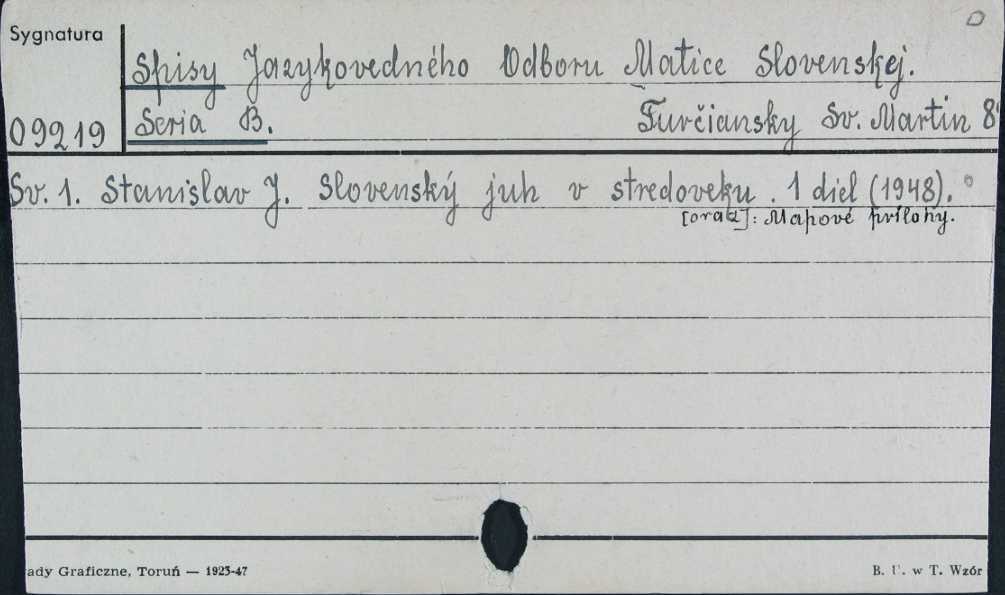 Sygnatura
Spisy Jazykovedného Odboru Matice Slovenskej.
09219
Seria B.
Turčiansky Sv. Martin 8°
Sv. 1. Stanislav J. Slovenský juh v stredoveku. 1 diel (1948).
[oraz]: Mapové prílohy.
ady Graficzne, Toruń — 1923-47
B. U. w T. Wzór